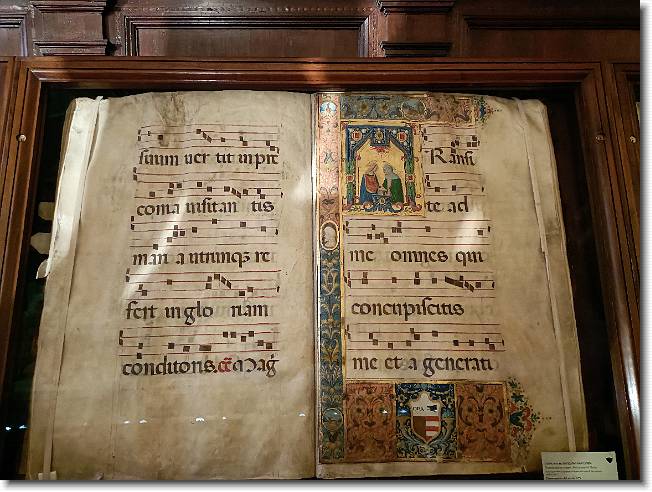 suum ver tit in pre
coma visitan tis
man a utrunqz re
fert in glo riam
conditoris. Mag
Ransi
te ad
me omnes qui
concupiscitis
me et a generati
OPA